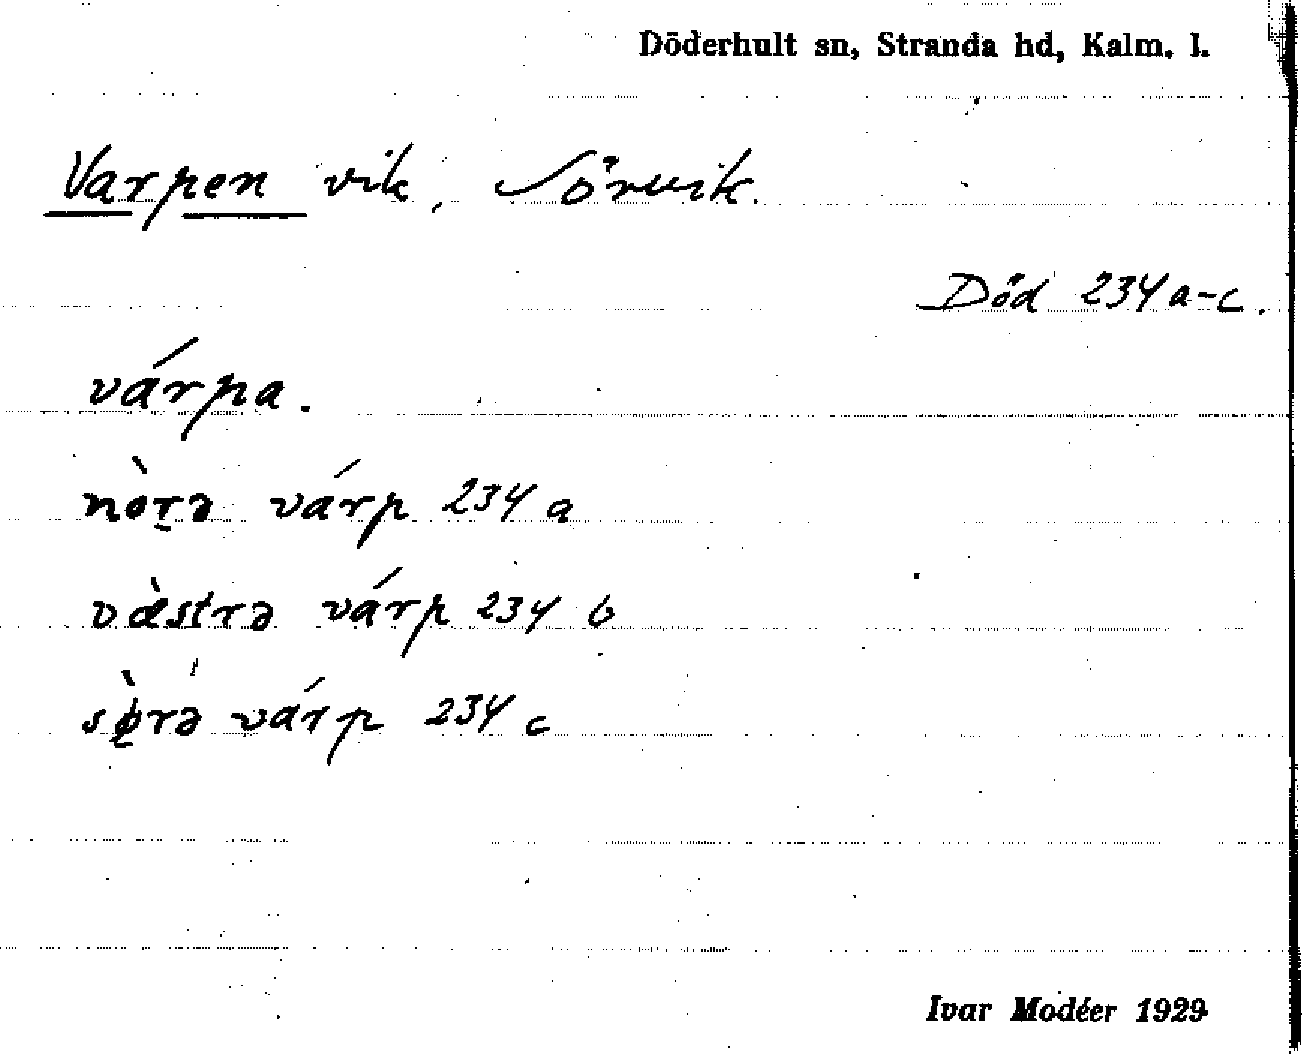 Döderhult sn, Stranda hd, Kalm. l.
Varpen vik, Sörvik.
Död 234 a-c.
várpa.
nòr̠ə várp 234 a
væ̀strə várp 234 b
sø̀rə várp 234 c
Ivar Modéer 1929